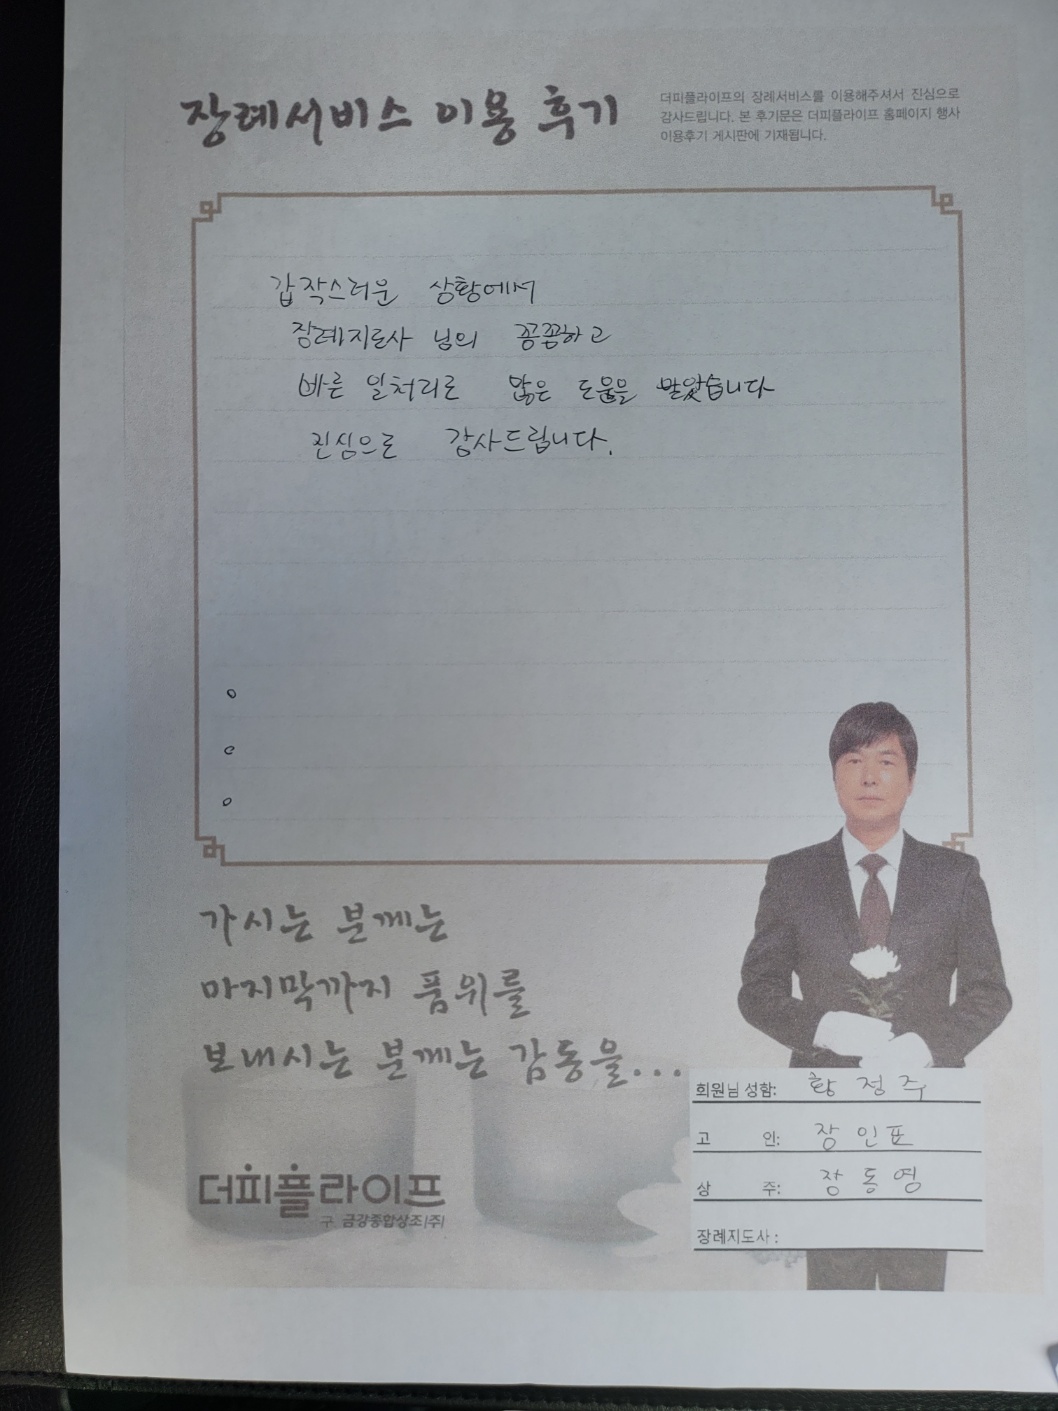 장례서비스 이용 후기
더피플라이프의 장례서비스를 이용해주셔서 진심으로
감사드립니다. 본 후기문은 더피플라이프 홈페이지 행사
이용후기 게시판에 기재됩니다.
갑작스러운 상황에서
장례지도사 님의 꼼꼼하고
빠른 일처리로 많은 도움을 받았습니다
진심으로 감사드립니다.
가시는 분께는
마지막까지 품위를
보내시는 분께는 감동을...
회원님 성함: 황정주
고 인: 장인표
상 주: 장동영
장례지도사 :
더피플라이프
구. 금강종합상조(주)